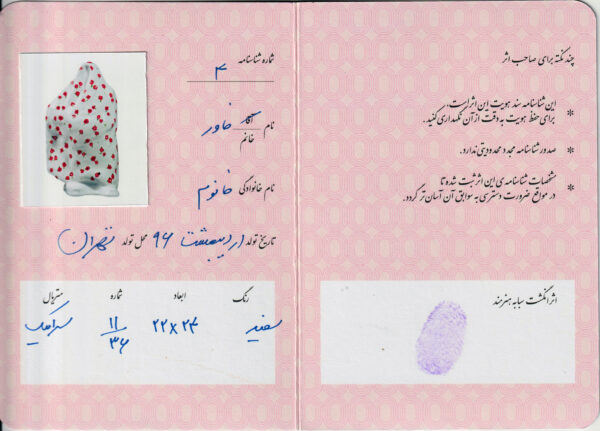 چند نکته برای صاحب اثر
* این شناسنامه سند هویت این اثر است،
برای حفظ هویت به دقت از آن نگهداری کنید.
* صدور شناسنامه مجدد محدودیتی ندارد.
* مشخصات شناسنامه‌ی این اثر ثبت شده تا
در مواقع ضرورت دسترسی به سوابق آن آسان‌تر گردد.
اثر انگشت سبابه هنرمند
شماره شناسنامه ۴
نام آقا خاور
خانم
نام خانوادگی خانوم
تاریخ تولد اردیبهشت ۹۶ محل تولد تهران
رنگ ابعاد شماره متریال
سفید ۲۲×۲۴ ۱۱/۳۶ سرامیک